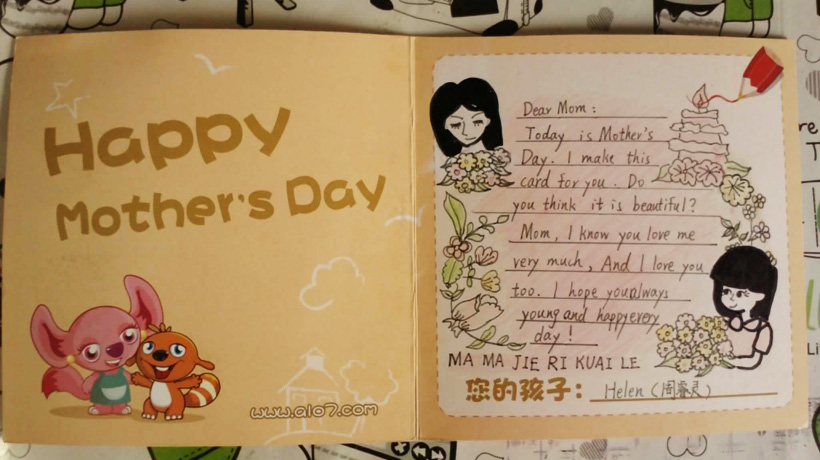 Happy
Mother's Day
www.alo7.com
Dear Mom :
Today is Mother's
Day. I make this
card for you. Do
you think it is beautiful?
Mom, I know you love me
very much, And I love you
too. I hope youalways
young and happyevery
day!
MA MA JIE RI KUAI LE
您的孩子: Helen (周睿灵)